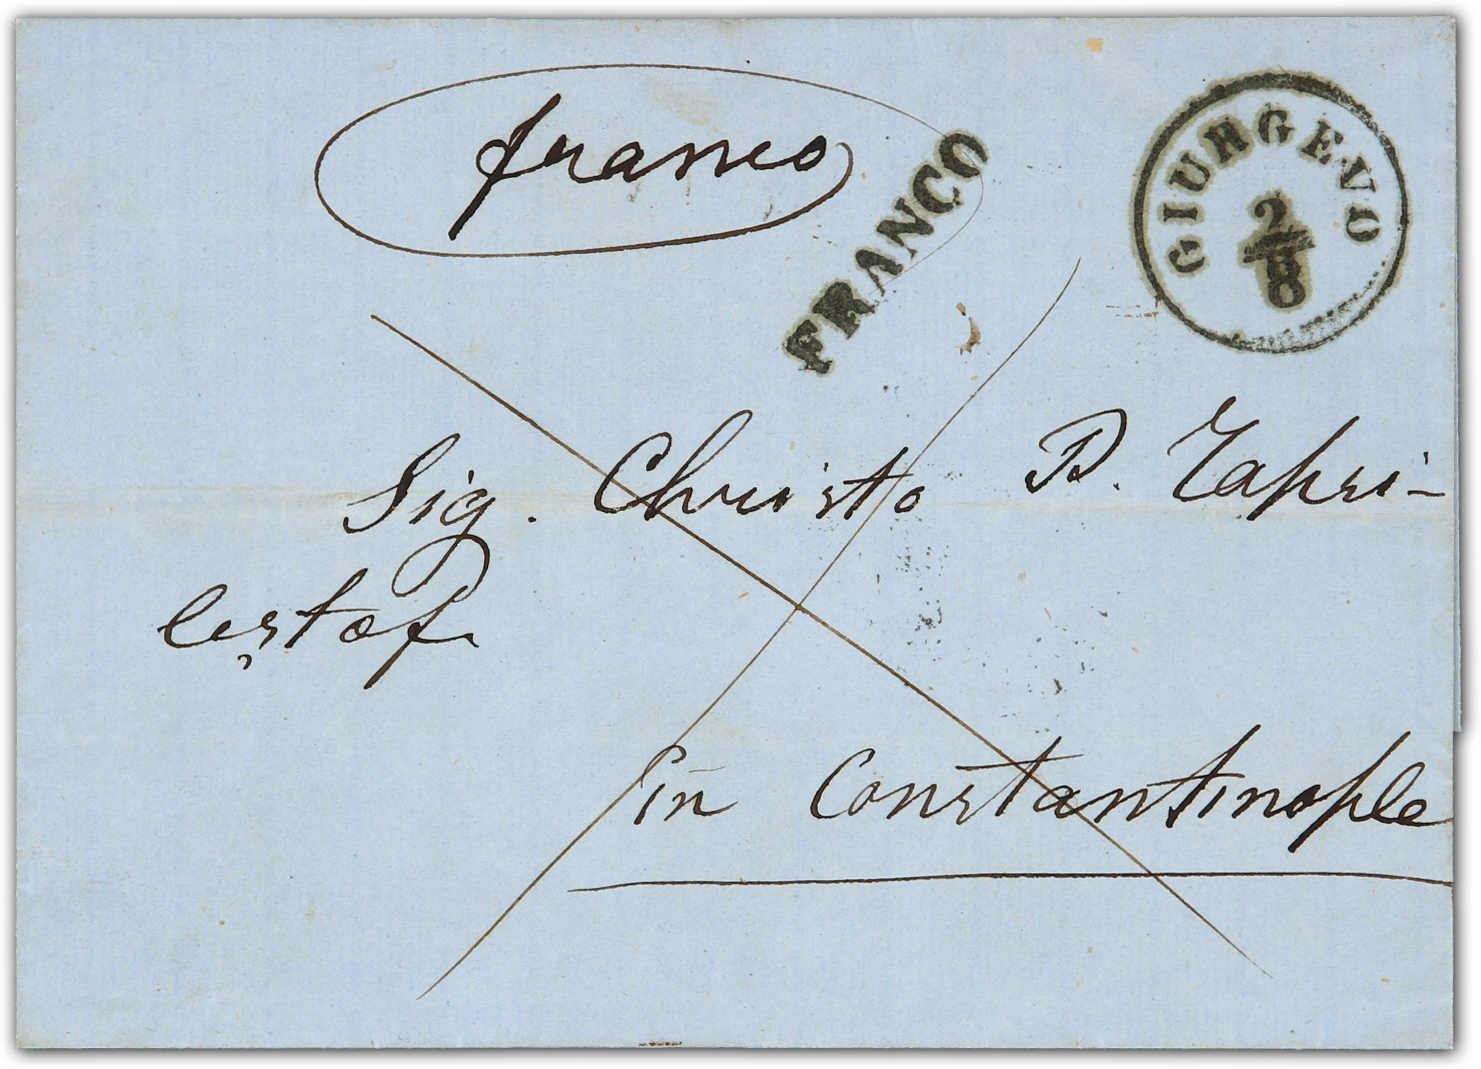 franco
FRANCO
GIURGEVO
2/8
Sig. Christo P. Tapri-
lestof
in Constantinople